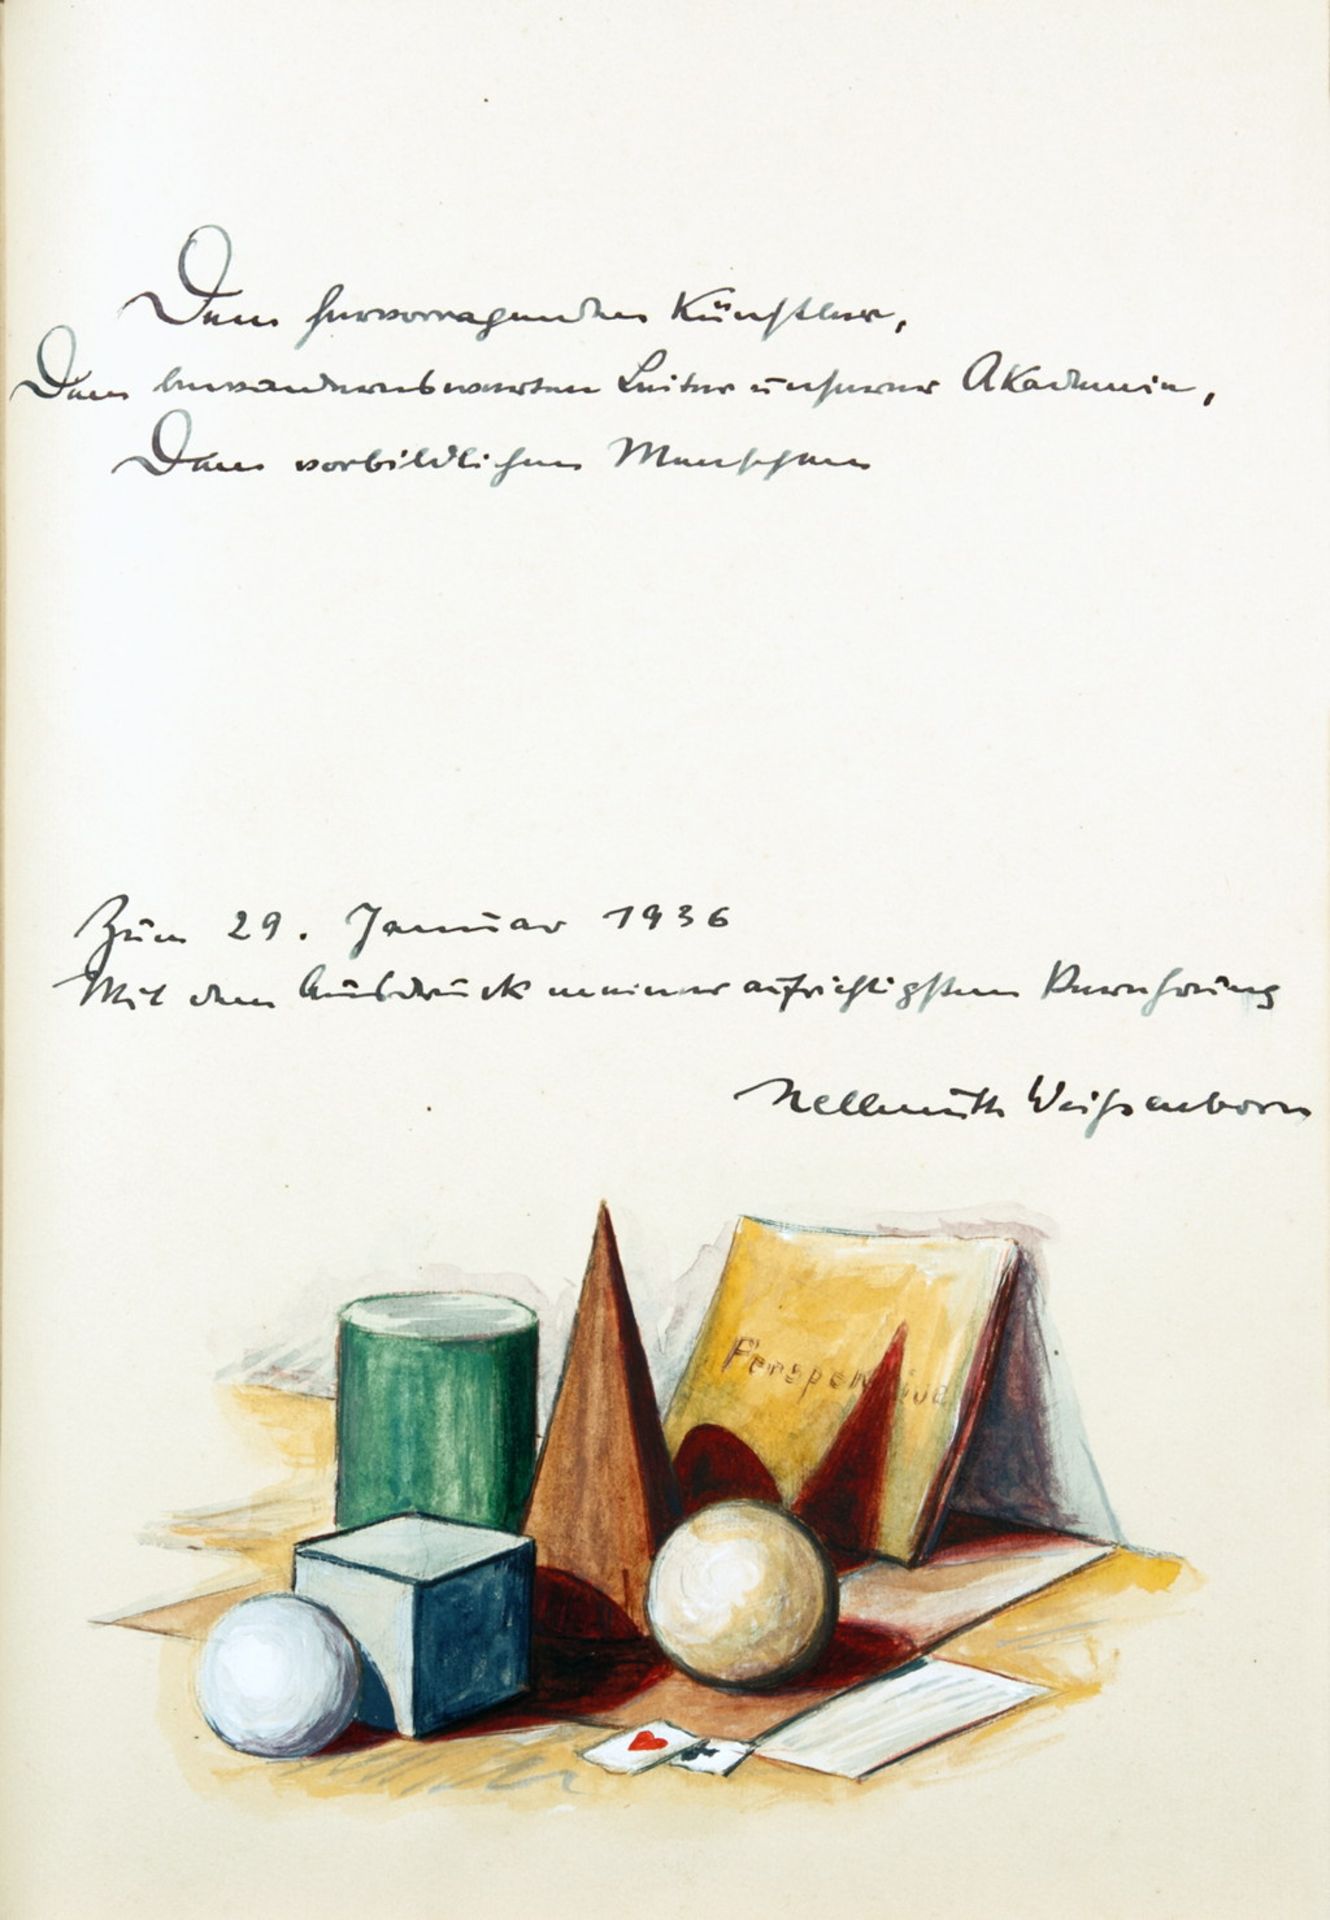 Dem hervorragenden Künstler,
Dem bewundernswerten Leiter unserer Akademie,
Dem vorbildlichen Menschen
Zum 29. Januar 1936
Mit dem Ausdruck meiner aufrichtigsten Verehrung
Hellmuth Weißenborn
Perspektive